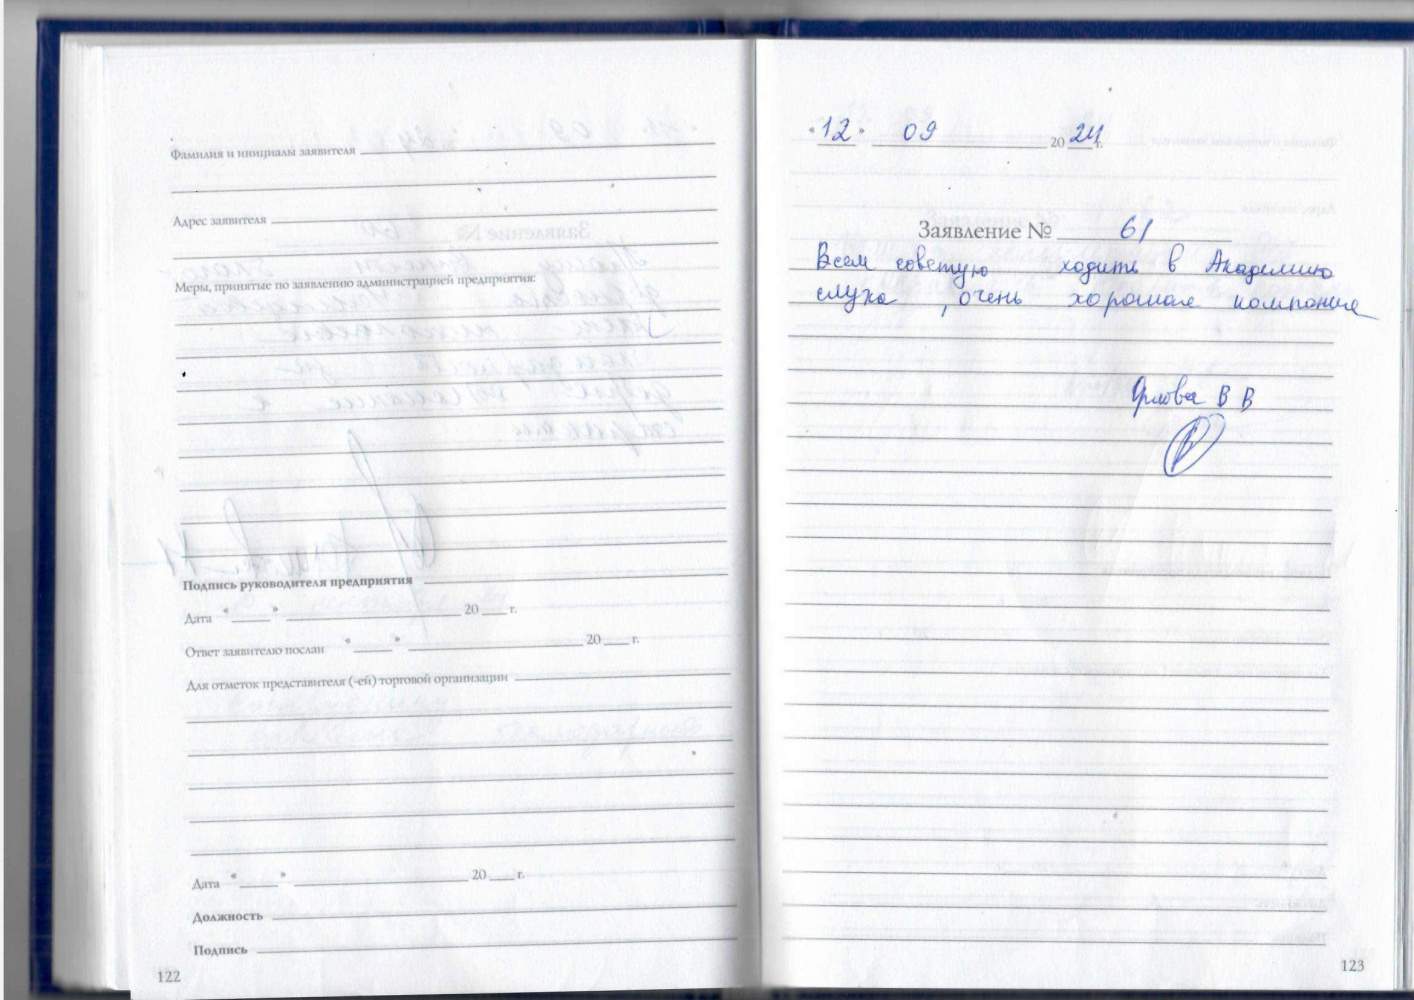 Фамилия и инициалы заявителя
Адрес заявителя
Меры, принятые по заявлению администрацией предприятия:
Подпись руководителя предприятия
Дата « » 20 г.
Ответ заявителю послан « » 20 г.
Для отметок представителя (-ей) торговой организации
Дата « » 20 г.
Должность
Подпись
122
«12» 09 2024 г.
Заявление № 61
Всем советую ходить в Академию
слуха , очень хорошая компания
Орлова В В
123